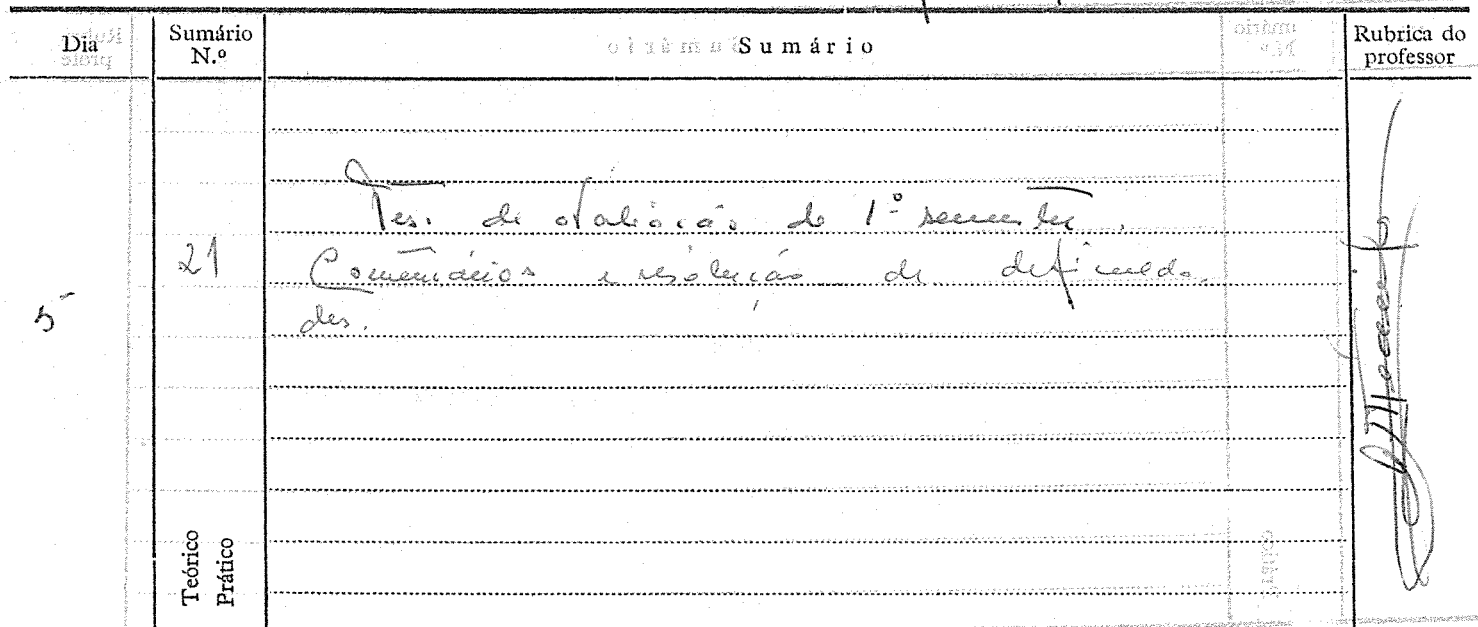 Dia
Sumário N.º
Sumário
Rubrica do professor
Tes. de avaliação do 1º semestre.
21 Comentários e resolução de dificuldades.
5
Teórico
Prático